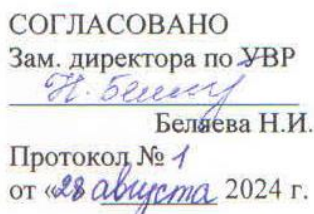 СОГЛАСОВАНО
Зам. директора по УВР
Н. Беляе
Беляева Н.И.
Протокол № 1
от «28 августа 2024 г.